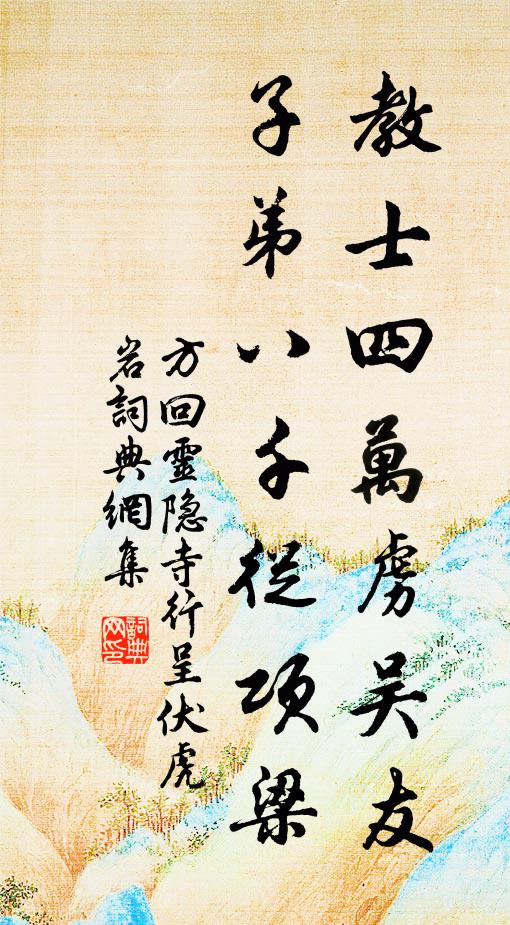 教士四萬虜吴友
子弟八千從項梁
方回靈隐寺行呈伏虎
岩詞典網集
詞典网印